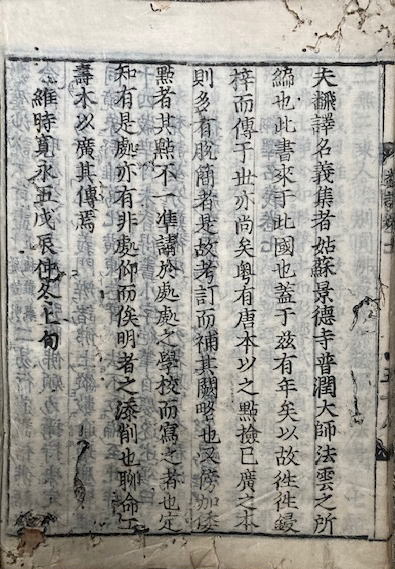 夫飜譯名義集者姑蘇景德寺普潤大師法雲之所
編也此書來于此國也蓋于茲有年矣以故徃徃鋟
梓而傳于世亦尚矣粤有唐本以之點撿已廣之本
則多有脫簡者是故考訂而補其闕略也又傍加倭
點者其點不一準講於處處之學校而寫之者也定
知有是處亦有非處仰而俟明者之添削也聊命工
壽木以廣其傳焉
維時寬永五戊辰仲冬上旬